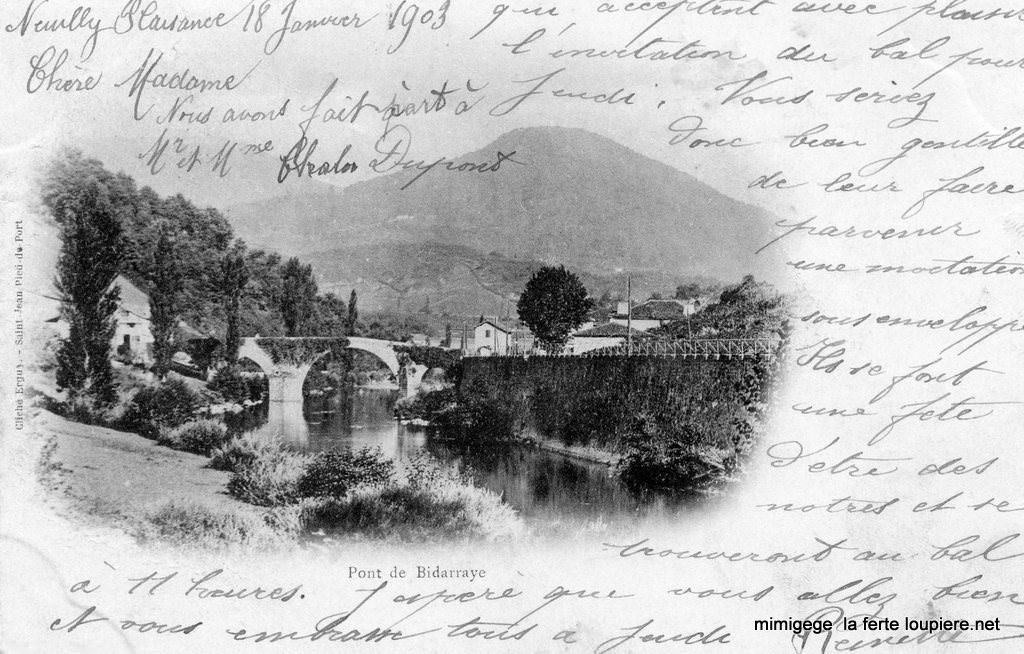 Neuilly Plaisance 18 Janvier 1903
Chère Madame
Nous avons fait part à
Mr et Mme Charles Dupont
qui acceptent avec plaisir
l'invitation du bal pour
Jeudi. Vous seriez
donc bien gentille
de leur faire
parvenir
une invitation
sous enveloppe
Ils se font
une fête
d'etre des
notres et se
trouveront au bal
à 11 heures. J'espère que vous allez bien
et vous embrasse tous à Jeudi
Pont de Bidarraye
Cliché Erguy. - Saint Jean Pied-de-Port
mimigege la ferte loupiere.net